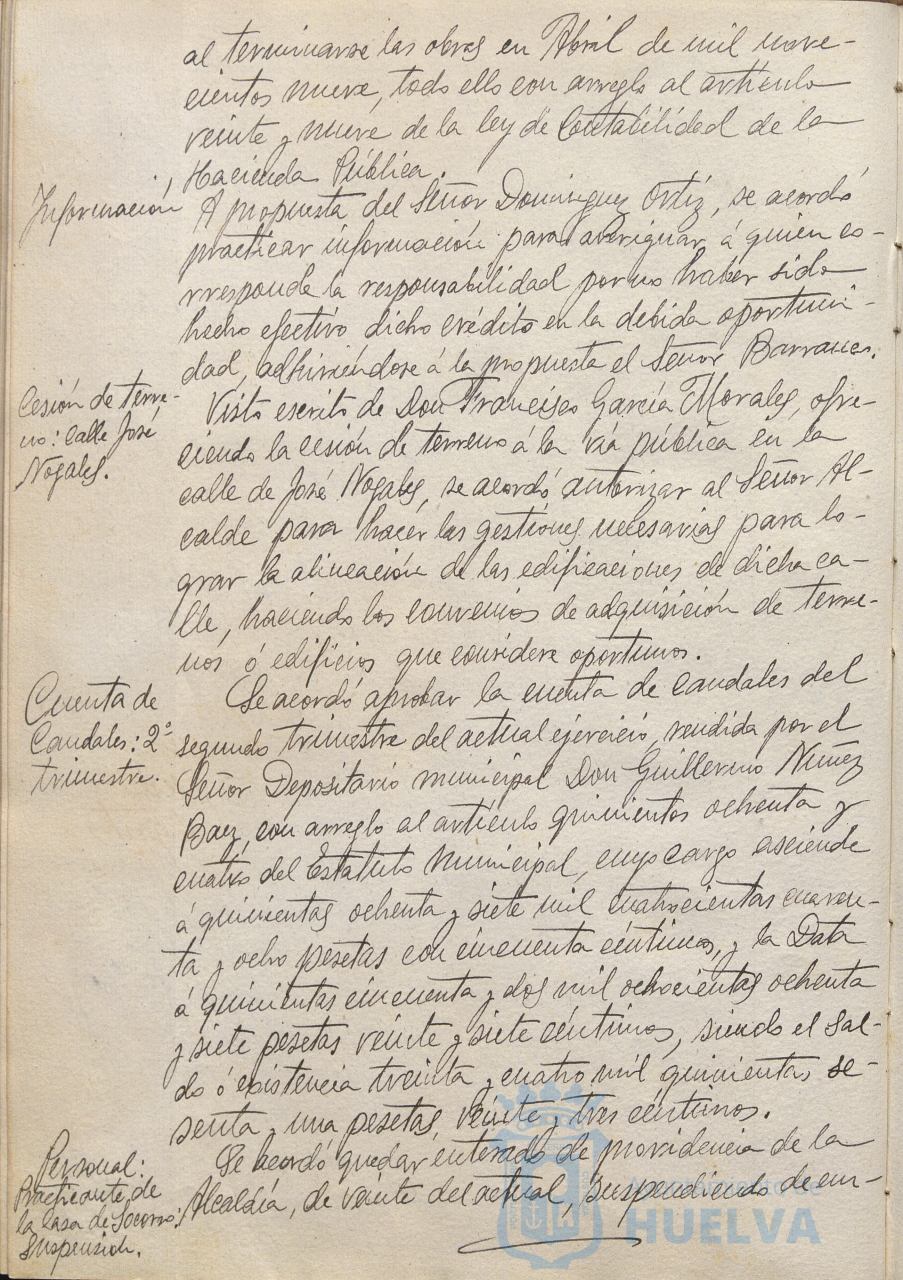 al terminarse las obras en Abril de mil nove-
cientos nueve, todo ello con arreglo al artículo
veinte y nueve de la ley de Contabilidad de la
Hacienda Pública.
Información
A propuesta del Señor Domínguez Ortíz, se acordó
practicar información para averiguar á quien co-
rresponde la responsabilidad por no haber sido
hecho efectivo dicho crédito en la debida oportuni-
dad, adhiriéndose á la propuesta el Señor Barranco.
Cesión de terre-
no: calle José
Nogales.
Visto escrito de Don Francisco García Morales, ofre-
ciendo la cesión de terreno á la vía pública en la
calle de José Nogales, se acordó autorizar al Señor Al-
calde para hacer las gestiones necesarias para lo-
grar la alineación de las edificaciones de dicha ca-
lle, haciendo los convenios de adquisición de terre-
nos ó edificios que considere oportunos.
Cuenta de
Caudales: 2º
trimestre.
Se acordó aprobar la cuenta de caudales del
segundo trimestre del actual ejercicio, rendida por el
Señor Depositario municipal Don Guillermo Nuñez
Baez, con arreglo al artículo quinientos ochenta y
cuatro del Estatuto Municipal, cuyo cargo asciende
á quinientas ochenta y siete mil cuatrocientas cuaren-
ta y ocho pesetas con cincuenta céntimos, y la Data
á quinientas cincuenta y dos mil ochocientas ochenta
y siete pesetas veinte y siete céntimos, siendo el sal-
do ó existencia treinta y cuatro mil quinientas se-
senta y una pesetas, veinte y tres céntimos.
Personal:
Practicante de
la Casa de Socorro:
Suspensión.
Se acordó quedar enterado de providencia de la
Alcaldía, de veinte del actual, suspendiendo de em-
Ayuntamiento de
HUELVA